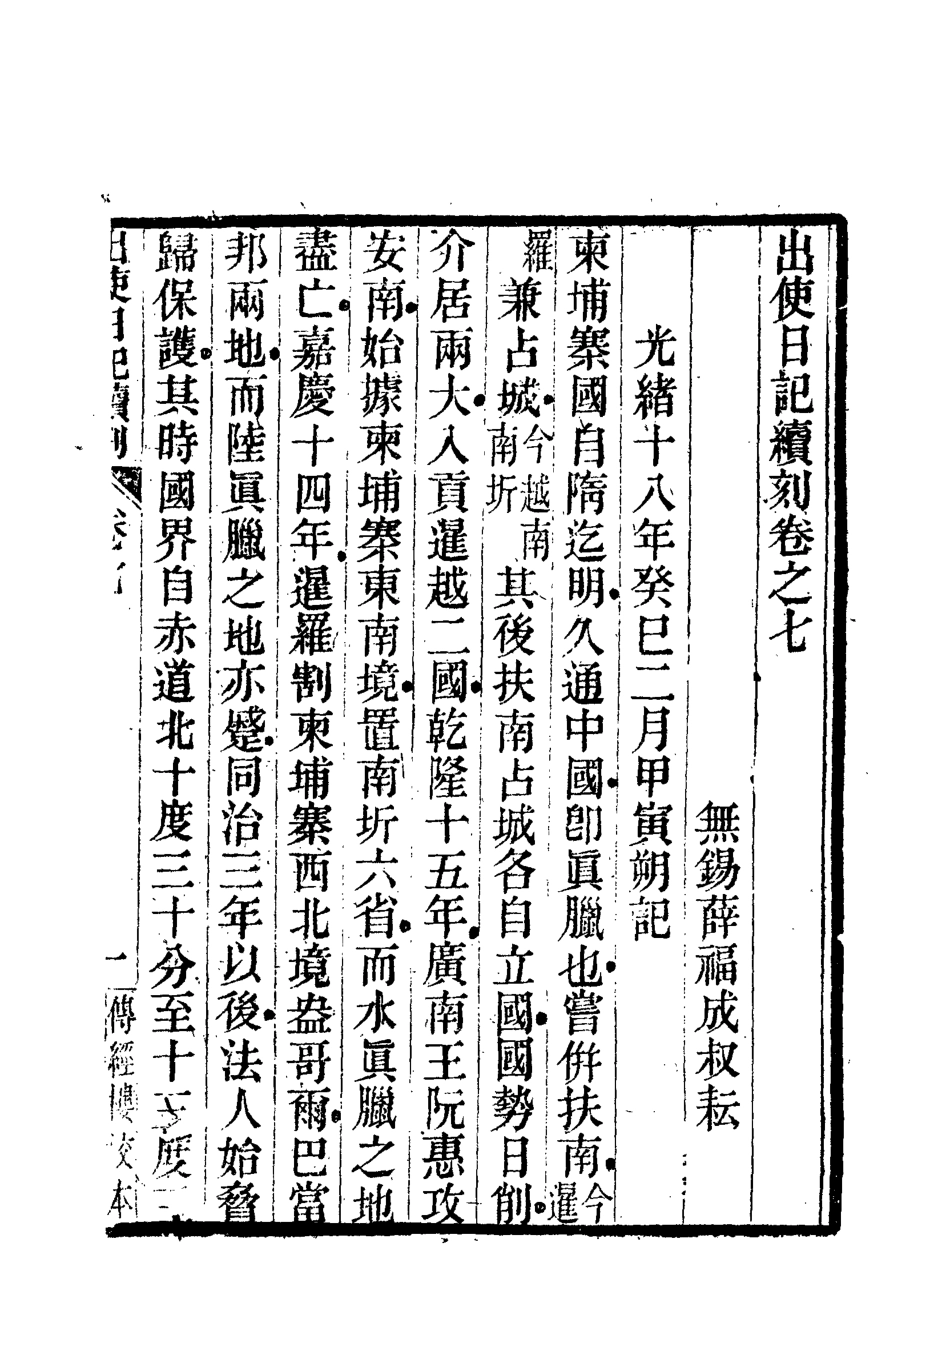 出使日記續刻卷之七
無錫薛福成叔耘
光緒十八年癸巳二月甲寅朔記
柬埔寨國自隋迄明久通中國卽眞臘也嘗併扶南今暹
羅兼占城今越南南圻其後扶南占城各自立國國勢日削
介居兩大入貢暹越二國乾隆十五年廣南王阮惠攻
安南始據柬埔寨東南境置南圻六省而水眞臘之地
盡亡嘉慶十四年暹羅割柬埔寨西北境盎哥爾巴當
邦兩地而陸眞臘之地亦蹙同治三年以後法人始脅
歸保護其時國界自赤道北十度三十分至十度
出使日記續刻 卷 一 傳經樓校本